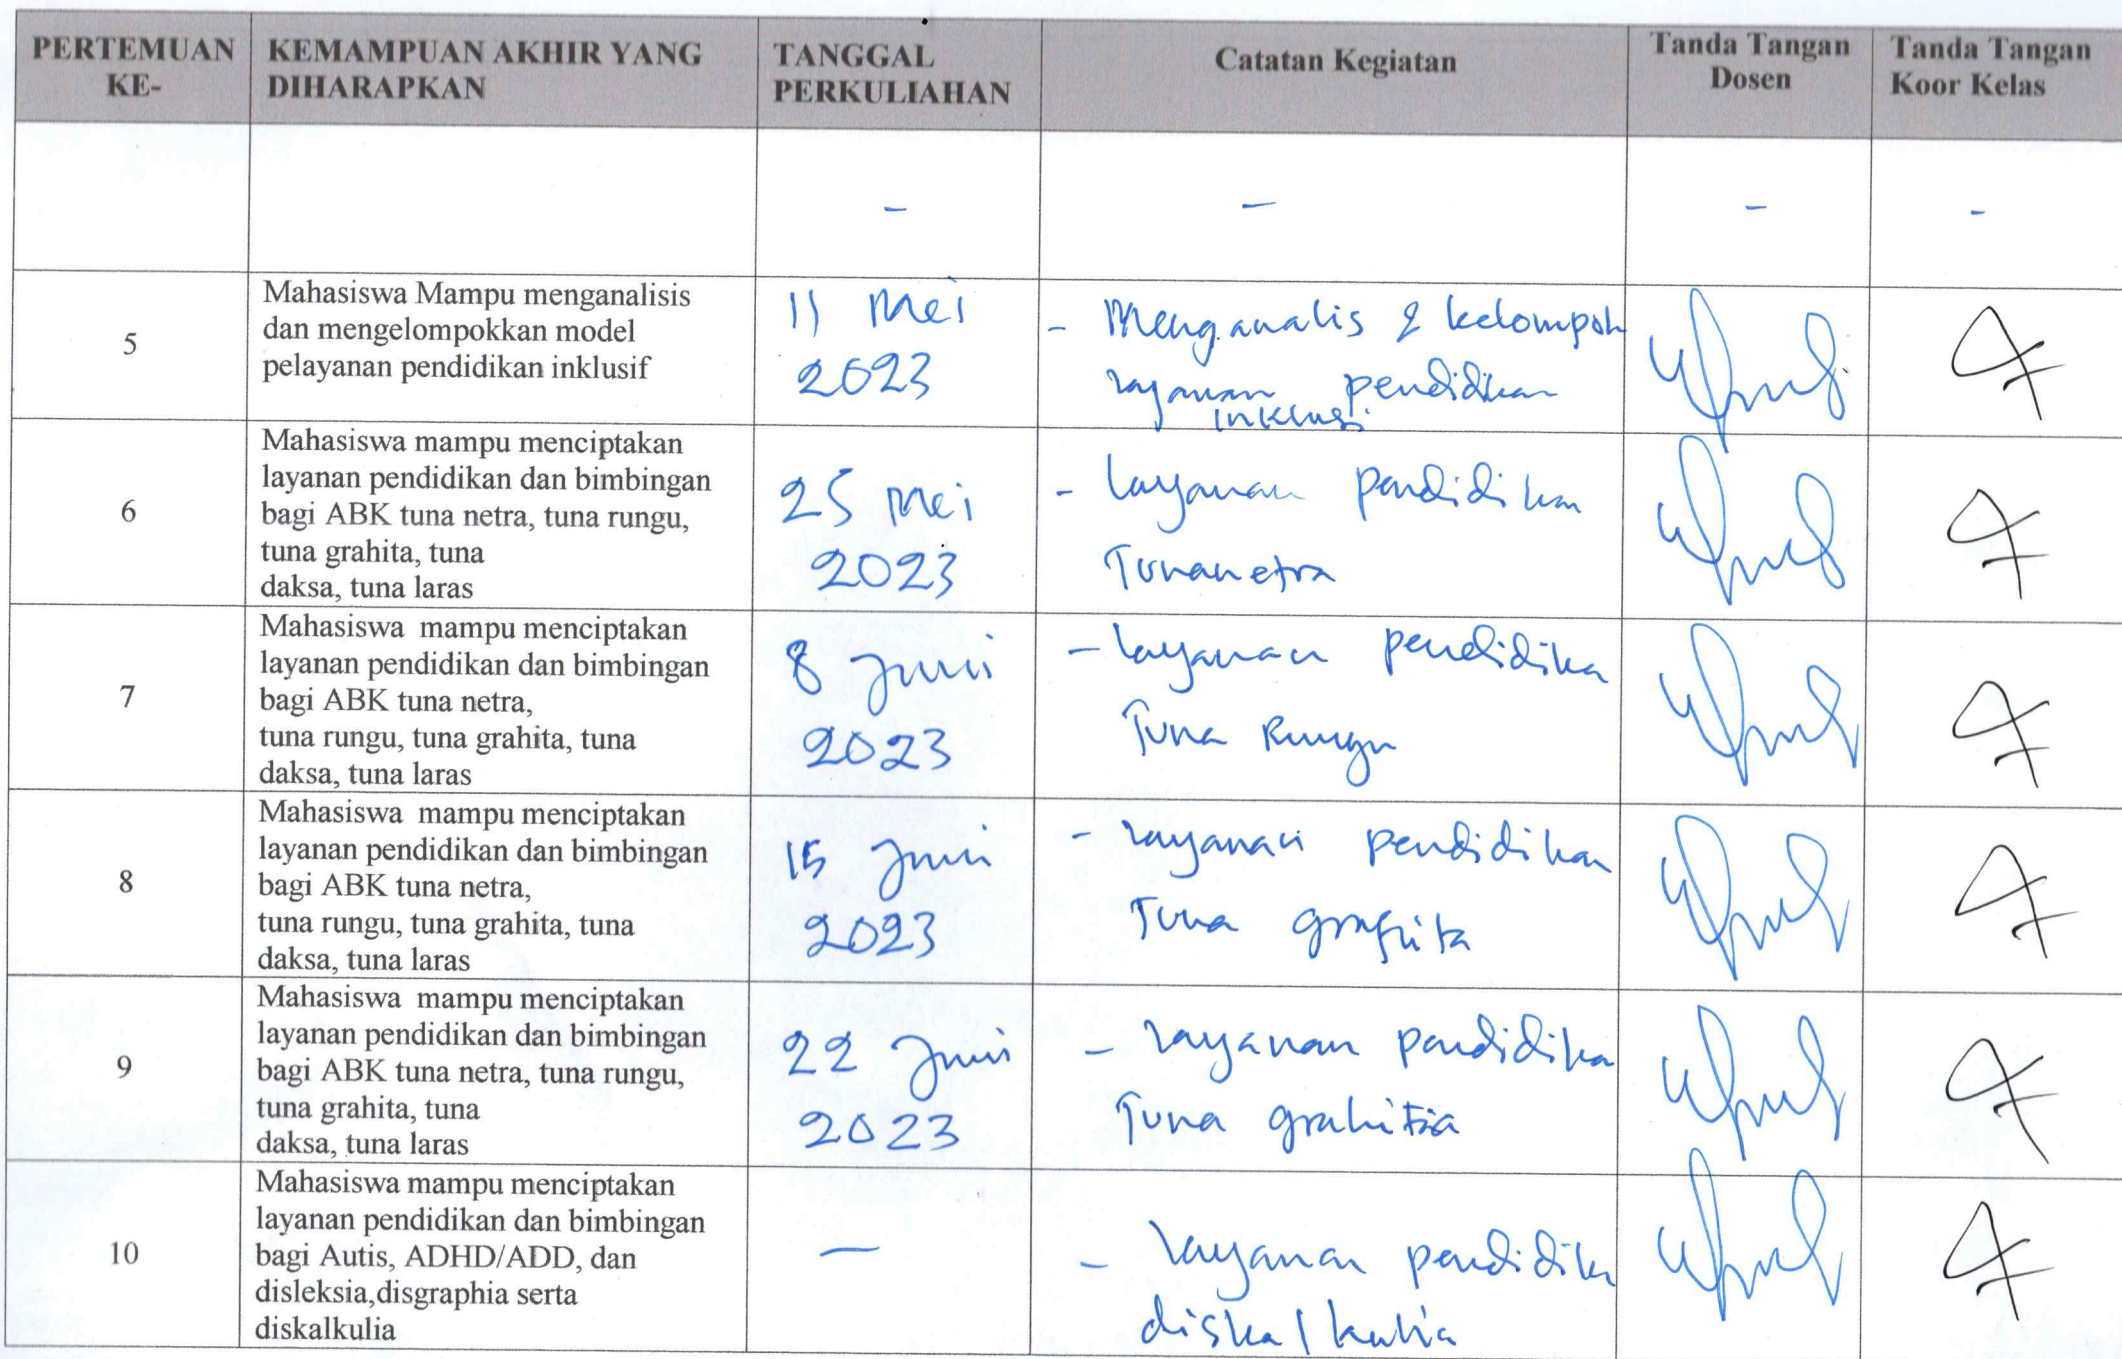 PERTEMUAN KE-
KEMAMPUAN AKHIR YANG DIHARAPKAN
TANGGAL PERKULIAHAN
Catatan Kegiatan
Tanda Tangan Dosen
Tanda Tangan Koor Kelas
-
-
-
-
5
Mahasiswa Mampu menganalisis
dan mengelompokkan model
pelayanan pendidikan inklusif
11 Mei
2023
- Menganalis & kelompok
layanan pendidikan
inklusi
6
Mahasiswa mampu menciptakan
layanan pendidikan dan bimbingan
bagi ABK tuna netra, tuna rungu,
tuna grahita, tuna
daksa, tuna laras
25 Mei
2023
- layanan pendidikan
Tunanetra
7
Mahasiswa mampu menciptakan
layanan pendidikan dan bimbingan
bagi ABK tuna netra,
tuna rungu, tuna grahita, tuna
daksa, tuna laras
8 Juni
2023
- layanan pendidika
Tuna Rungu
8
Mahasiswa mampu menciptakan
layanan pendidikan dan bimbingan
bagi ABK tuna netra,
tuna rungu, tuna grahita, tuna
daksa, tuna laras
15 Juni
2023
- layanan pendidikan
Tuna grahita
9
Mahasiswa mampu menciptakan
layanan pendidikan dan bimbingan
bagi ABK tuna netra, tuna rungu,
tuna grahita, tuna
daksa, tuna laras
22 Juni
2023
- layanan pendidika
Tuna grahita
10
Mahasiswa mampu menciptakan
layanan pendidikan dan bimbingan
bagi Autis, ADHD/ADD, dan
disleksia,disgraphia serta
diskalkulia
-
- layanan pendidik
diskalkulia